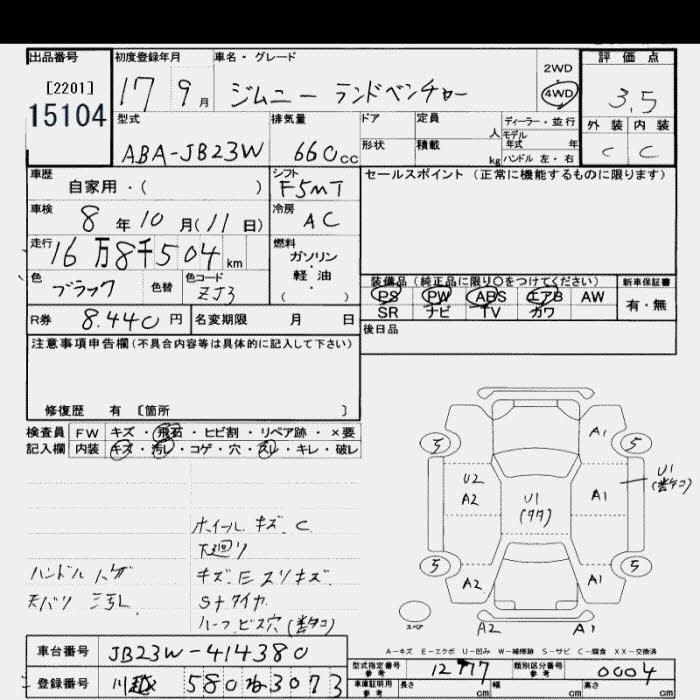 出品番号 初度登録年月 車名・グレード 2WD 評価点
[2201] 17 9月 ジムニー ランドベンチャー 4WD 3.5
15104
型式 排気量 ドア 定員 人 ディーラー・並行 外装 内装
モデル年式 年
ABA-JB23W 660cc 形状 積載 kg ハンドル 左・右 C C
車歴 シフト セールスポイント(正常に機能するものに限ります)
自家用・( ) F5MT
車検 冷房
8年10月(11日) AC
走行 燃料
16万8千504km ガソリン
軽・油
( )
色 色替 色コード 装備品(純正品に限り○をつけてください) 新車保証書
ブラック ZJ3 PS PW ABS エアB AW 有・無
SR ナビ TV カワ
R券 8.440円 名変期限 月 日 後日品
注意事項申告欄(不具合内容等は具体的に記入して下さい)
修復歴 有 [箇所 ]
検査員 FW キズ・飛石・ヒビ割・リペア跡・×要
記入欄 内装 キズ・汚レ・コゲ・穴・スレ・キレ・破レ
A1
5 5
U2 U1
A2 A1
U1
(タタ)
5 5
A2 A1
スペア
A2 A1
ホイール キズ.C
下廻り
ハンドル ハゲ キズ.E スリキズ.
天バリ 汚レ S+タイヤ
ハーフ ビス穴
A-キズ E-エクボ U-凹み W-補修跡 S-サビ C-腐食 XX-交換済
車台番号 JB23W-414380
型式指定番号 参考 類別区分番号 参考 0004
登録番号 川越 580 ね 3073
車庫証明用 参考 長さ cm 幅 cm 高さ cm